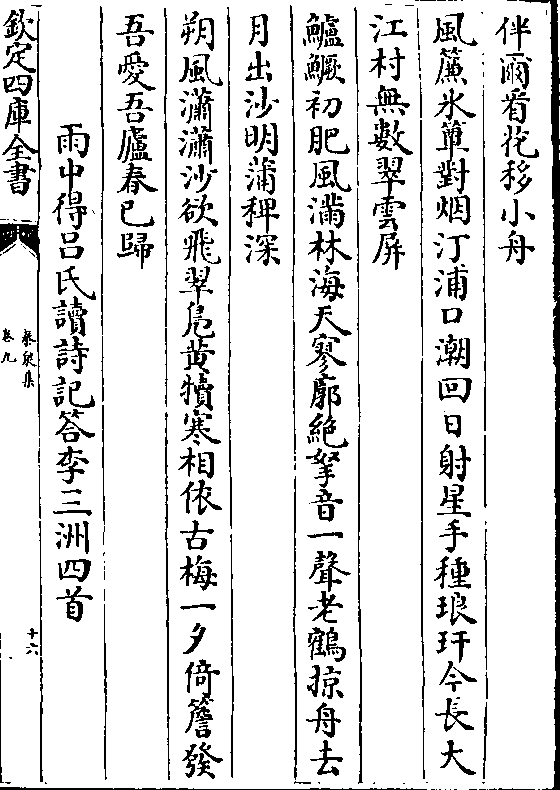 伴爾看花移小舟
風簾氷簟對烟汀浦口潮回日射星手種琅玕今長大
江村無數翠雲屏
鱸鱖初肥風滿林海天寥廓絶拏音一聲老鶴掠舟去
月出沙明蒲稗深
朔風瀟瀟沙欲飛翠凫黄犢寒相依古梅一夕倚簷發
吾愛吾廬春已歸
雨中得吕氏讀詩記答李三洲四首
欽定四庫全書
泰泉集
卷九
十六